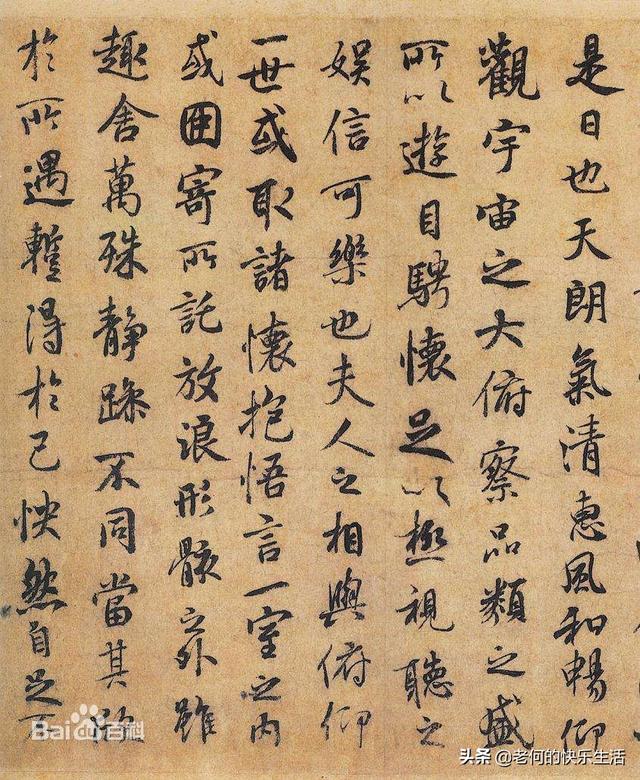 是日也天朗氣清惠風和暢仰
觀宇宙之大俯察品類之盛
所以遊目騁懷足以極視聽之
娛信可樂也夫人之相與俯仰
一世或取諸懷抱悟言一室之内
或因寄所託放浪形骸之外雖
趣舍萬殊靜躁不同當其欣
於所遇蹔得於己怏然自足不
Bai百科
头条 @老何的快乐生活